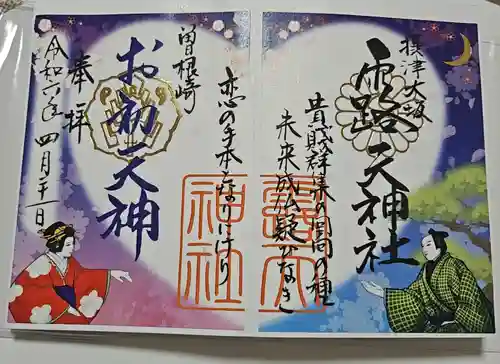 摂津大坂
露天神社
貴賤群集の回向の種
未来成仏疑ひなき
恋の手本となりにけり
曽根崎
お初天神
奉拝
令和六年四月廿一日
露天
神社